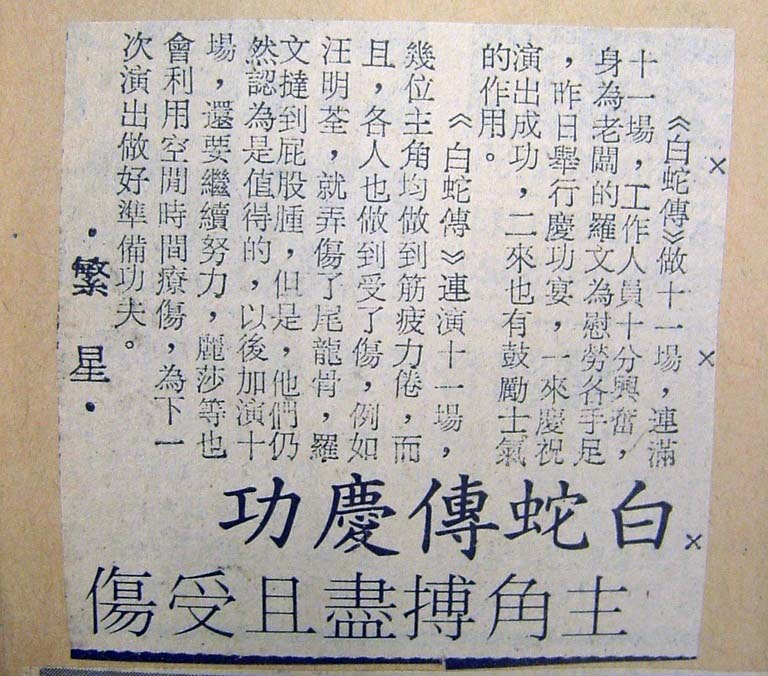 白蛇傳慶功
主角搏盡且受傷
《白蛇傳》做十一場，連滿
十一場，工作人員十分興奮，
身為老闆的羅文為慰勞各手足
，昨日舉行慶功宴，一來慶祝
演出成功，二來也有鼓勵士氣
的作用。
《白蛇傳》連演十一場，
幾位主角均做到筋疲力倦，而
且，各人也做到受了傷，例如
汪明荃，就弄傷了尾龍骨，羅
文撻到屁股腫，但是，他們仍
然認為是值得的，以後加演十
場，還要繼續努力，麗莎等也
會利用空閒時間療傷，為下一
次演出做好準備功夫。
·繁星·